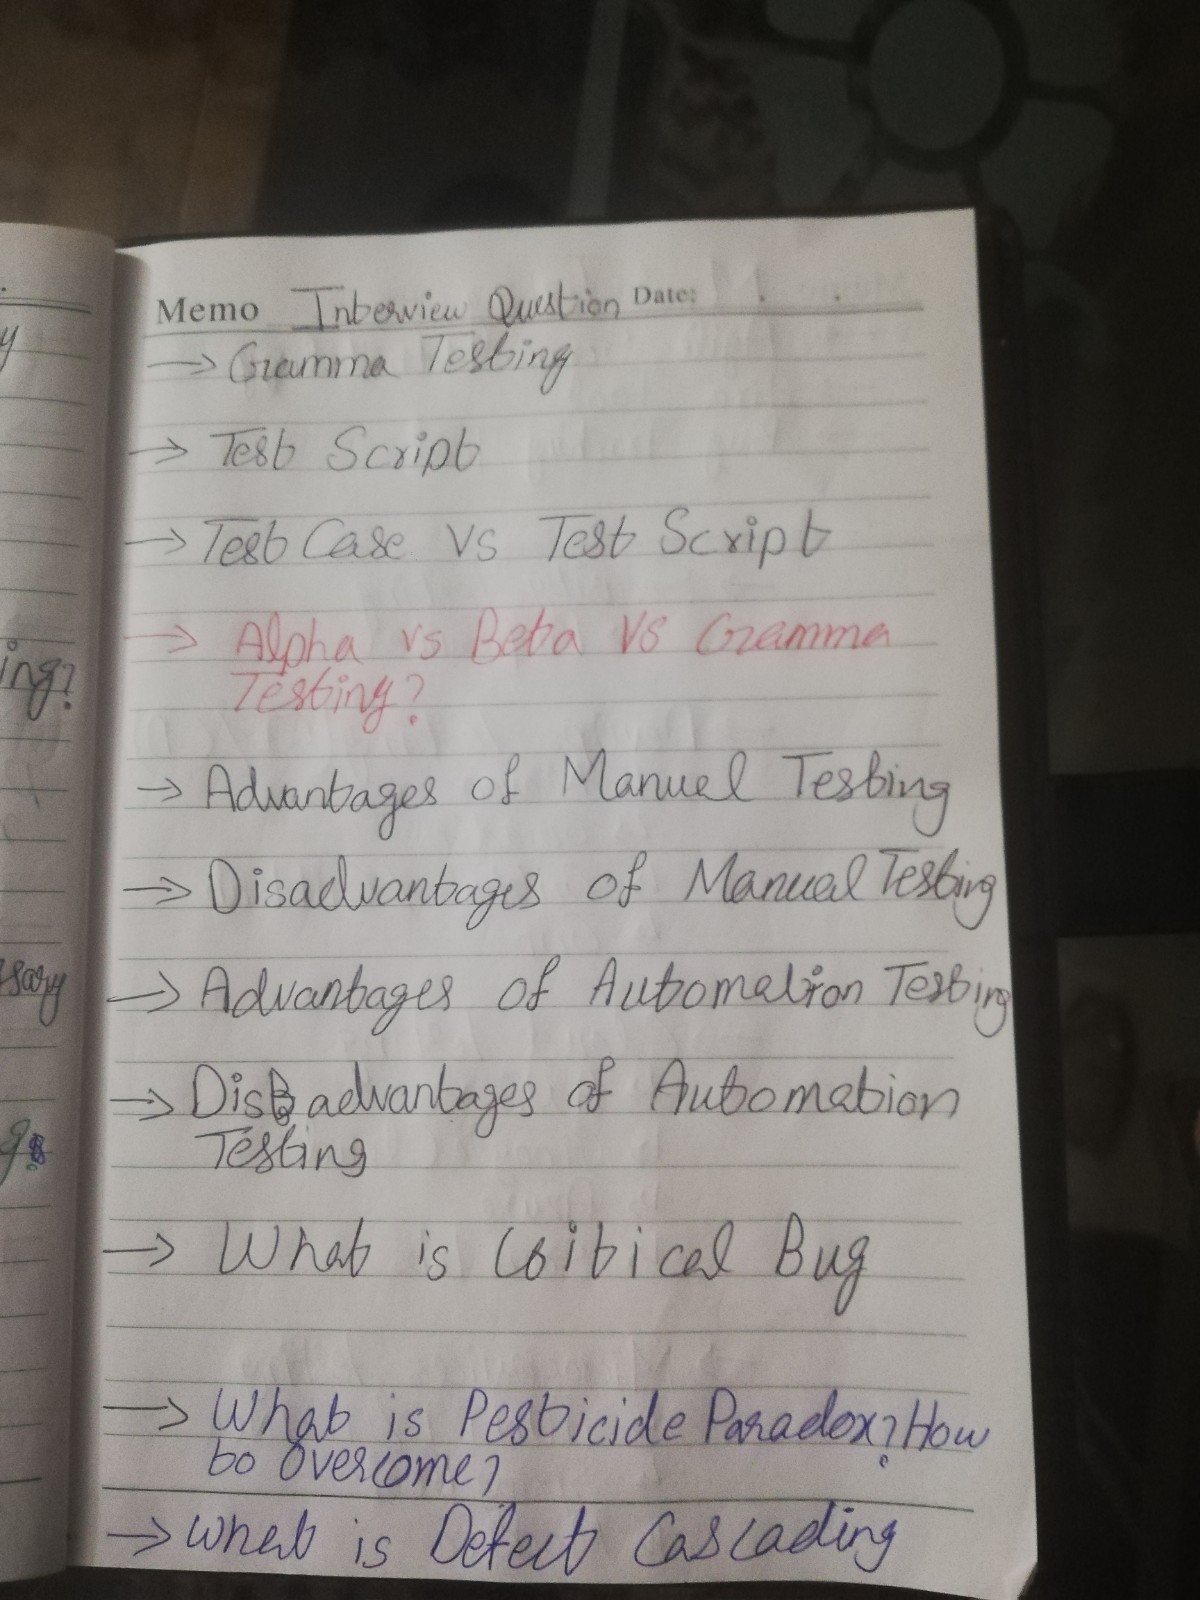 Memo Interview Question Date:
→ Gramma Testing
→ Test Script
→ Test Case VS Test Script
→ Alpha vs Beta VS Gramma
Testing?
→ Advantages of Manuel Testing
→ Disadvantages of Manual Testing
→ Advantages of Automation Testing
→ Disadvantages of Automation
Testing
→ What is Critical Bug
→ What is Pesticide Paradox? How
to Overcome?
→ What is Defect Cascading